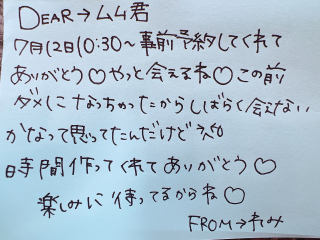 DEAR→ムム君
7月12日10:30〜事前予約してくれて
ありがとう♡やっと会えるね♡この前
ダメになっちゃったからしばらく会えない
かなって思ってたんだけど
時間作ってくれてありがとう♡
楽しみに待ってるからね♡
FROM→れみ